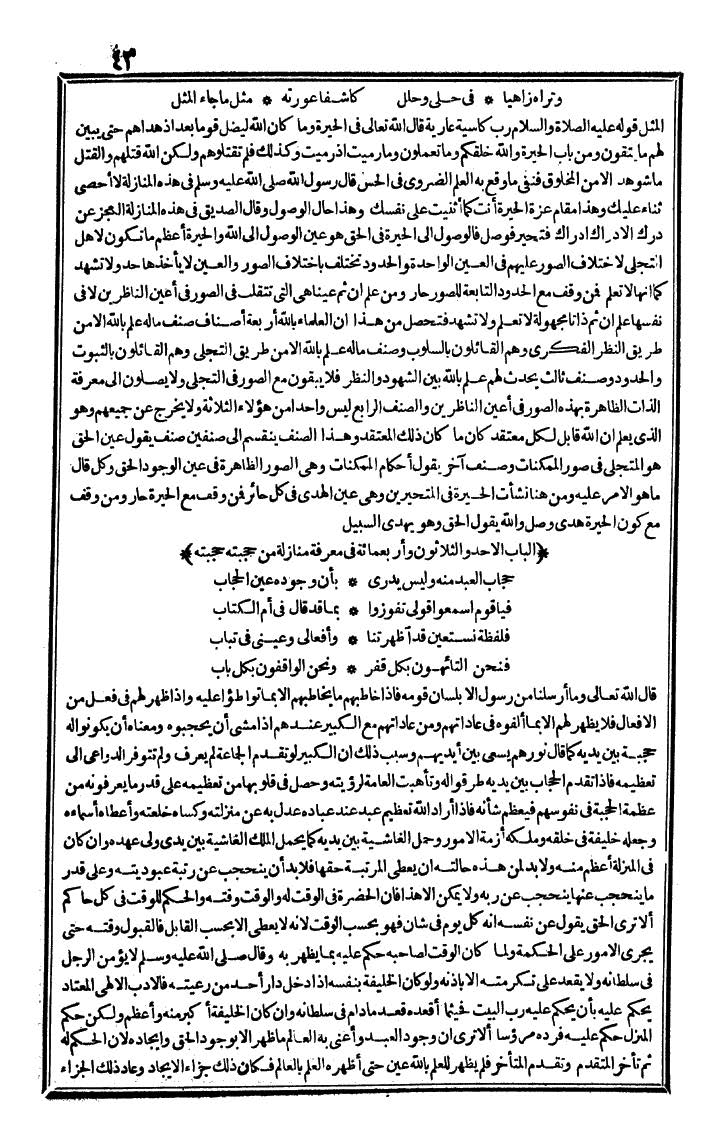 ٤٣
وتراه زاهيا * فى حلى وحلل كاشفا عورته * مثل ما جاء المثل
المثل قوله عليه الصلاة والسلام رب كاسية عارية قال الله تعالى فى الحيرة وما كان الله ليضل قوما بعد اذ هداهم حتى يبين
لهم ما يتقون ومن باب الحيرة والله خلقكم وما تعملون وما رميت اذ رميت وكذلك فلم تقتلوهم ولكن الله قتلهم والقتل
ما شوهد الا من المخلوق فنفى ما وقع به العلم الضرورى فى الحس قال رسول الله صلى الله عليه وسلم فى هذه المنازلة لا أحصى
ثناء عليك وهذا مقام عزة الحيرة أنت كما أثنيت على نفسك وهذا حال الوصول وقال الصديق فى هذه المنازلة العجز عن
درك الادراك ادراك فتحير فوصل فالوصول الى الحيرة فى الحق هو عين الوصول الى الله والحيرة أعظم ما تكون لاهل
التجلى لاختلاف الصور عليهم فى العين الواحدة والحدود تختلف باختلاف الصور والعين لا يأخذها حد ولا تشهد
كما انها لا تعلم فمن وقف مع الحدود التابعة للصور حار ومن علم ان ثم عينا هى التى تتقلب فى الصور فى أعين الناظرين لا فى
نفسها علم ان ثم ذاتا مجهولة لا تعلم ولا تشهد فتحصل من هذا ان العلماء بالله أربعة أصناف صنف ماله علم بالله الا من
طريق النظر الفكرى وهم القائلون بالسلوب وصنف ماله علم بالله الا من طريق التجلى وهم القائلون بالثبوت
والحدود وصنف ثالث يحدث لهم علم بالله بين الشهود والنظر فلا يبقون مع الصور فى التجلى ولا يصلون الى معرفة
الذات الظاهرة بهذه الصور فى أعين الناظرين والصنف الرابع ليس واحدا من هؤلاء الثلاثة ولا يخرج عن جميعهم وهو
الذى يعلم ان الله قابل لكل معتقد كان ما كان ذلك المعتقد وهذا الصنف ينقسم الى صنفين صنف يقول عين الحق
هو المتجلى فى صور الممكنات وصنف آخر يقول أحكام الممكنات وهى الصور الظاهرة فى عين الوجود الحق وكل قال
ما هو الامر عليه ومن هنا نشأت الحيرة فى المتحيرين وهى عين الهدى فى كل حائر فمن وقف مع الحيرة حار ومن وقف
مع كون الحيرة هدى وصل والله يقول الحق وهو يهدى السبيل
﴿الباب الاحد والثلاثون وأربعمائة فى معرفة منازلة من حجبته حجبته﴾
حجاب العبد منه وليس يدرى * بأن وجوده عين الحجاب
فيا قوم اسمعوا قولى تفوزوا * بما قد قال فى أم الكتاب
فلفظة نستعين قد أظهرتنا * وأفعالى وعينى فى تباب
فنحن التائهون بكل قفر * ونحن الواقفون بكل باب
قال الله تعالى وما أرسلنا من رسول الا بلسان قومه فاذا خاطبهم ما يخاطبهم الا بما تواطؤا عليه واذا ظهر لهم فى فعل من
الافعال فلا يظهر لهم الا بما ألفوه فى عاداتهم ومن عاداتهم مع الكبير عندهم اذا مشى أن يحجبوه ومعناه أن يكونوا له
حجبة بين يديه كما قال نورهم يسعى بين أيديهم وسبب ذلك ان الكبير لو تقدم الجماعة لم يعرف ولم تتوفر الدواعى الى
تعظيمه فاذا تقدم الحجاب بين يديه طرقوا له وتأهبت العامة لرؤيته وحصل فى قلوبها من تعظيمه على قدر ما يعرفونه من
عظمة الحجبة فى نفوسهم فيعظم شأنه فاذا أراد الله تعظيم عبد عند عباده عدل به عن منزلته وكساه خلعته وأعطاه أسماءه
وجعله خليفة فى خلقه وملكه أزمة الامور وحمل الغاشية بين يديه كما يحمل الملك الغاشية بين يدى ولى عهده وان كان
فى المنزلة أعظم منه ولا بد لمن هذه حالته ان يعطى المرتبة حقها فلا بد أن ينحجب عن رتبة عبوديته وعلى قدر
ما ينحجب عنها ينحجب عن ربه ولا يمكن الا هذا فان الحضرة فى الوقت له والوقت وقته والحكم للوقت فى كل حاكم
ألا ترى الحق يقول عن نفسه انه كل يوم فى شان فهو بحسب الوقت لانه لا يعطى الا بحسب القابل فالقبول وقته حتى
يجرى الامور على الحكمة ولما كان الوقت لصاحبه حكم عليه بما يظهر به وقال صلى الله عليه وسلم لا يؤمن الرجل
فى سلطانه ولا يقعد على تكرمته الا باذنه ولو كان الخليفة بنفسه اذا دخل دار أحد من رعيته فالادب الالهى المعتاد
يحكم عليه بأن يحكم عليه رب البيت فحيثما أقعده قعد ما دام فى سلطانه وان كان الخليفة أكبر منه وأعظم ولكن حكم
المنزل حكم عليه فرده مرؤسا ألا ترى ان وجود العبد وأعنى به العالم ما ظهر الا بوجود الحق وايجاده لان الحكم له
ثم تأخر المتقدم وتقدم المتأخر فلم يظهر للعلم بالله عين حتى أظهره العلم بالعالم فكان ذلك جزاء الايجاد وعاد ذلك الجزاء